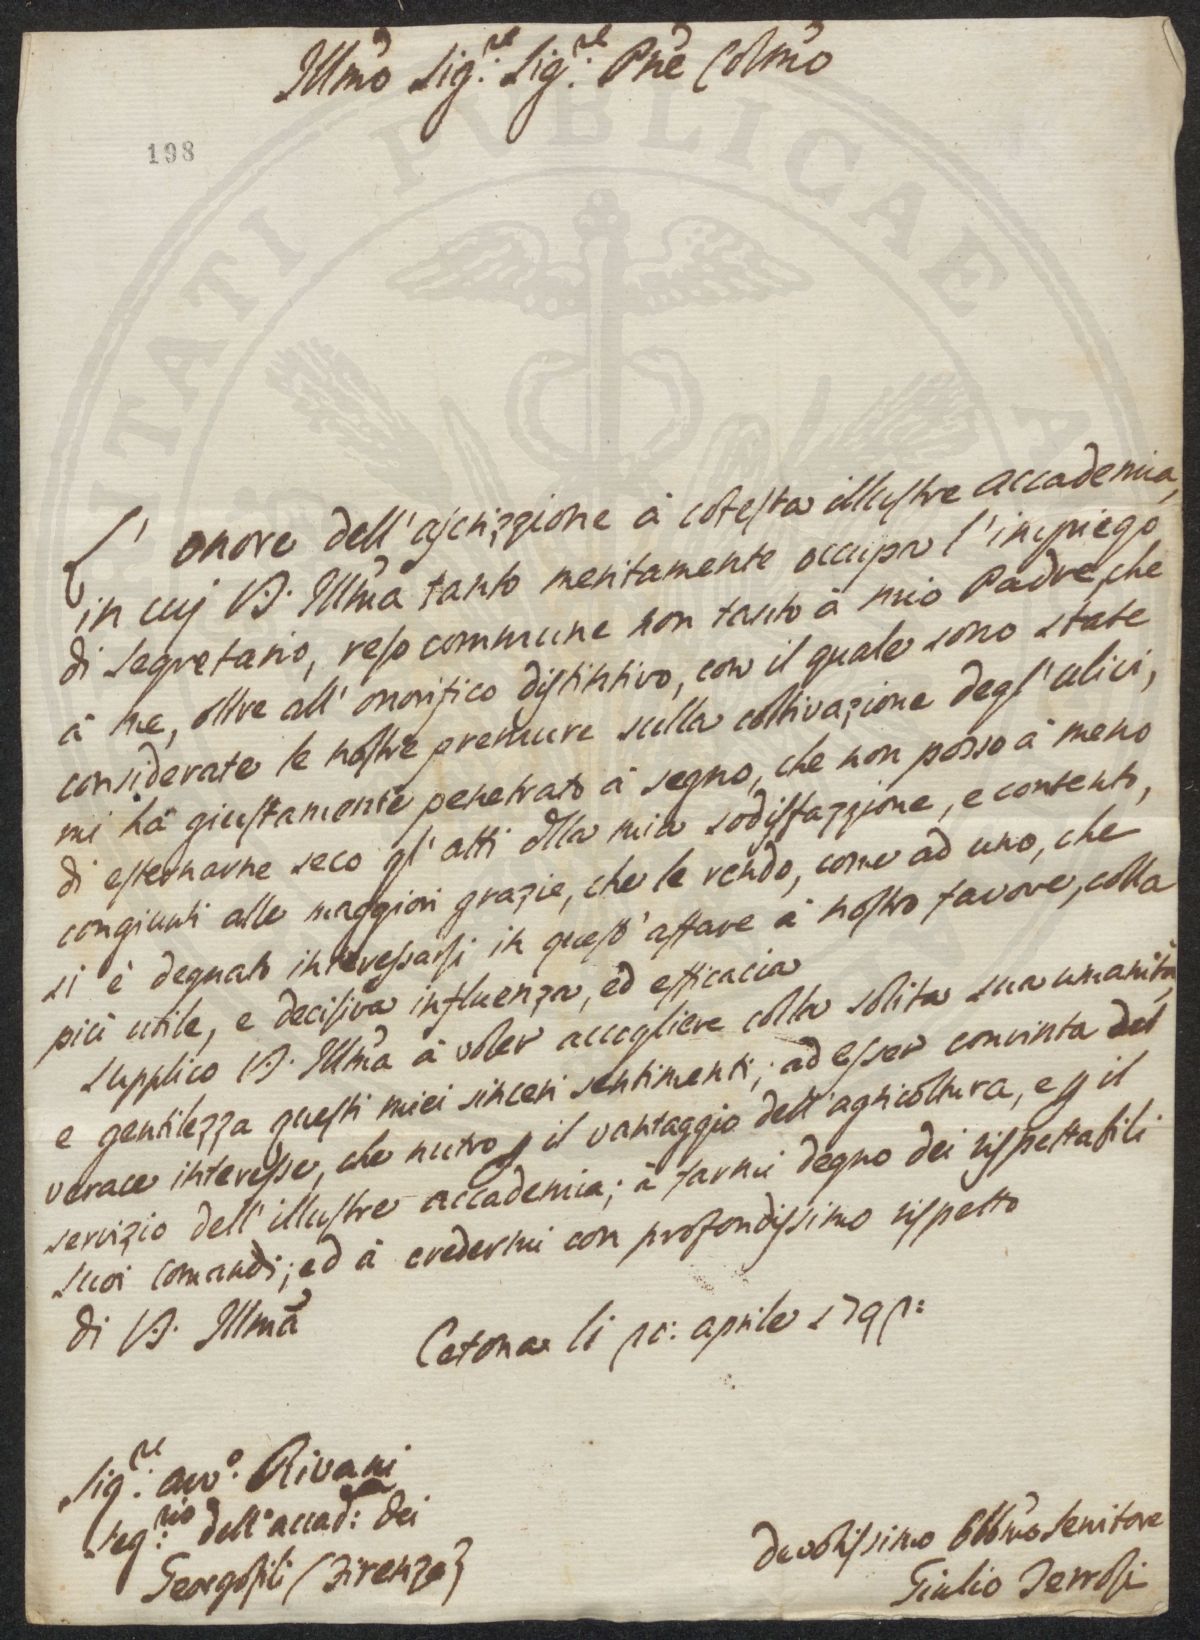 Illmo Sig.re Sig.re Pne Colmo
198
L' onore dell' ascrizzione à cotesta illustre accademia,
in cuj V.S. Illma tanto meritamente occupa l' impiego
di segretario, reso commune non tanto à mio Padre, che
à me, oltre all' onorifico distintivo, con il quale sono state
considerate le nostre premure sulla coltivazione degl' ulivi,
mi hà giustamente penetrato à segno, che non posso à meno
di esternarne seco gl' atti della mia sodisfazzione, e contento,
congiunti alle maggiori grazie, che le rendo, come ad uno, che
si è degnato interessarsi in quest' affare à nostro favore, colla
più utile, e decisiva influenza, ed efficacia
Supplico V.S. Illma à voler accogliere colla solita sua umanità,
e gentilezza questi miei sinceri sentimenti; ad esser convinta del
verace interesse, che nutro p il vantaggio dell' agricoltura, e p il
servizio dell' illustre accademia; à farmi degno dei rispettabili
suoi comandi; ed à credermi con profondissimo rispetto
di V.S. Illma
Cetona li aprile
Sig.re avv.o Rivani
Seg.rio dell' accad: dei
Georgofili (Firenze)
devotissimo obbmo servitore
Giulio Terrosi